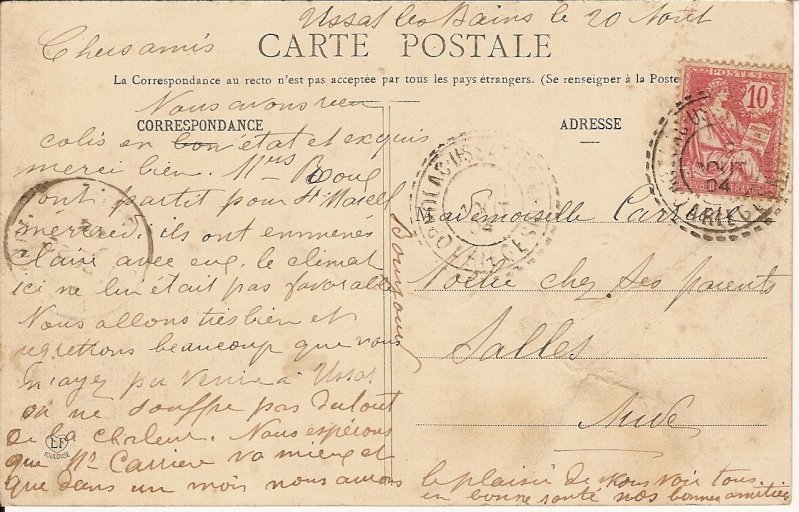 Ussat les Bains le 20 Aout
Chers amis
CARTE POSTALE
La Correspondance au recto n'est pas acceptée par tous les pays étrangers. (Se renseigner à la Poste
Nous avons reçu
CORRESPONDANCE
colis en bon état et exquis
merci bien. Mrs
vont partit pour St Marcel
mercredi ils ont emmenés
Claire avec eux. le climat
ici ne lui était pas favorable
Nous allons très bien et
regrettons beaucoup que vous
n'ayez pu venir à Ussat
on ne souffre pas du tout
de la chaleur. Nous espérons
que Mr Carrière va mieux et
que dans un mois nous aurons
le plaisir de vous voir tous
en bonne santé nos bonnes amitiés
Bonjour
ADRESSE
Mademoiselle Carrière
Noélie chez ses parents
Salles
Aude
POSTES
10
04
ARIEGE
LF
TOULOUSE